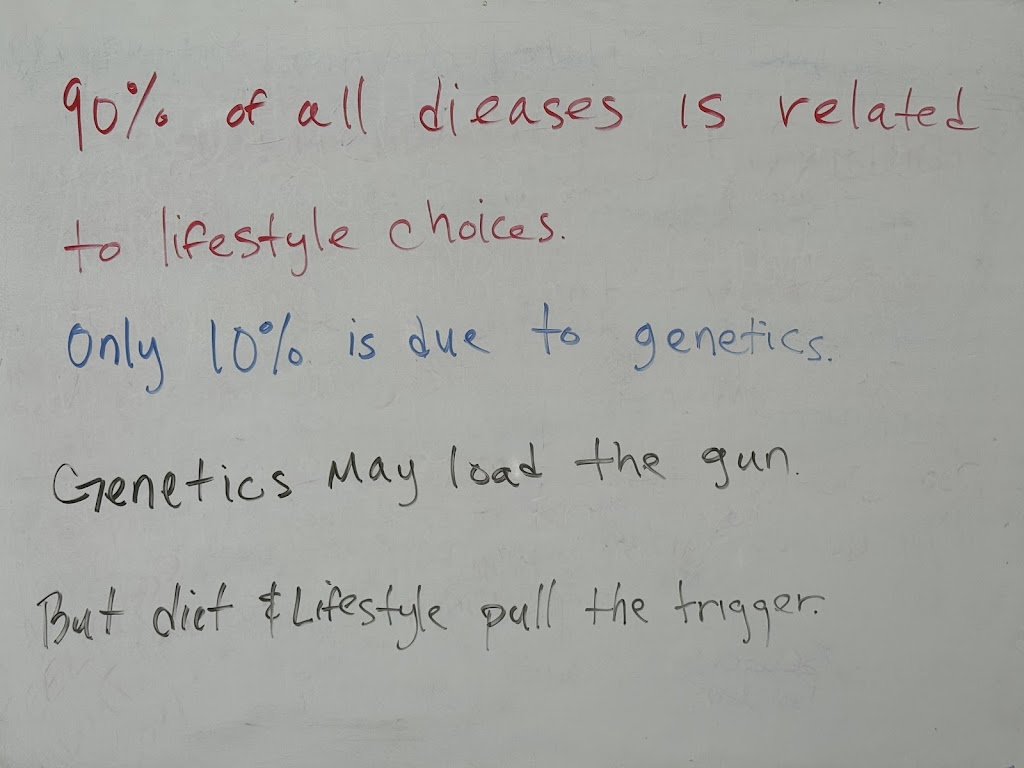 90% of all dieases is related
to lifestyle choices.
Only 10% is due to genetics.
Genetics May load the gun.
But diet & Lifestyle pull the trigger.